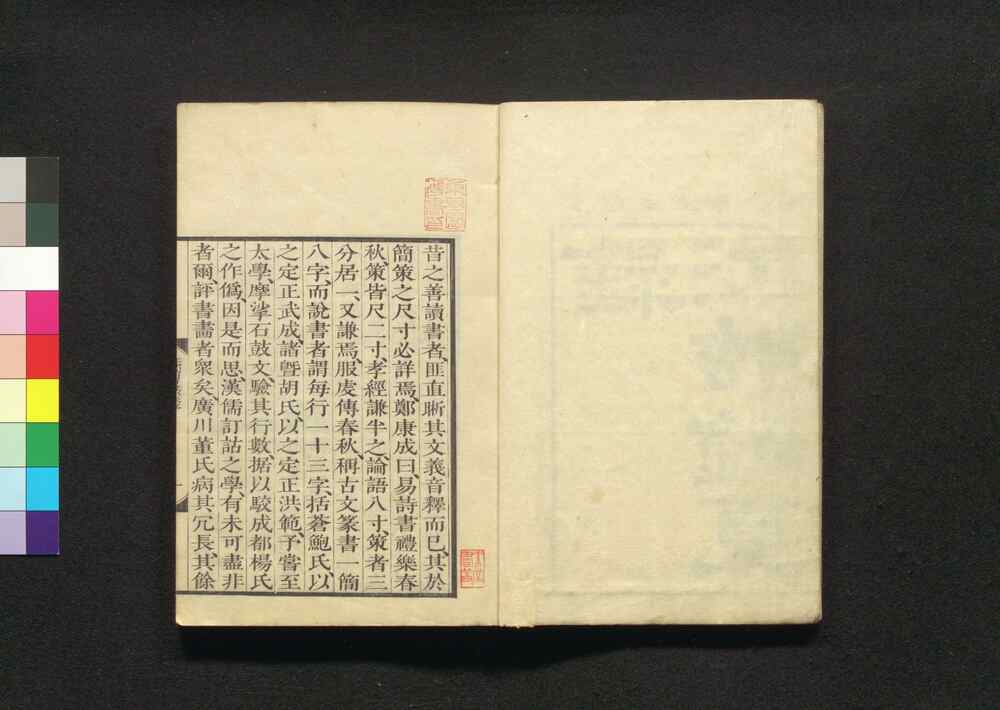 昔之善讀書者、匪直晣其文義音釋而已、其於
簡策之尺寸必詳焉、鄭康成曰、易詩書禮樂春
秋、策皆尺二寸、孝經謙半之、論語八寸、策者三
分居一、又謙焉、服虔傳春秋、稱古文篆書一簡
八字、而說書者謂每行一十三字、括蒼鮑氏、以
之定正武成、諸曁胡氏、以之定正洪範、予嘗至
太學、摩挲石鼓文、驗其行數、据以駮成都楊氏
之作僞、因是而思、漢儒訂詁之學、有未可盡非
者爾、評書畵者衆矣、廣川董氏病其冗長、其餘